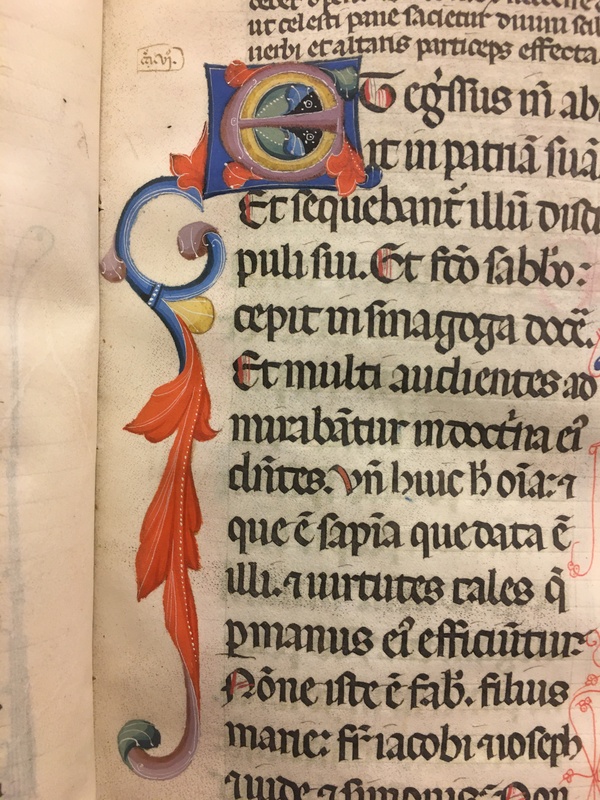 ut celesti pane sacietur diuini
uerbi et altaris particeps effecta
m̃.vi.
ET eg̃ssus ĩñ ab
ijt in patriã suã
Et sequebant᷑ illũ disci
puli sui. Et fc̃o sabb̃o:
cepit in sinagoga docẽ.
Et multi audientes ad
mirabãtur in doctⁱna eiꝰ
dic̃ntes. Vñ huic h̃ oĩa: ⁊
que ẽ sapĩa que data ẽ
illi. ⁊ uirtutes tales q̃
ꝑ manus eiꝰ efficiũtur:
Nõne iste ẽ fab̃. filius
marie: fr̃ iacobi ⁊ ioseph
⁊ iude ⁊ simonis: Non